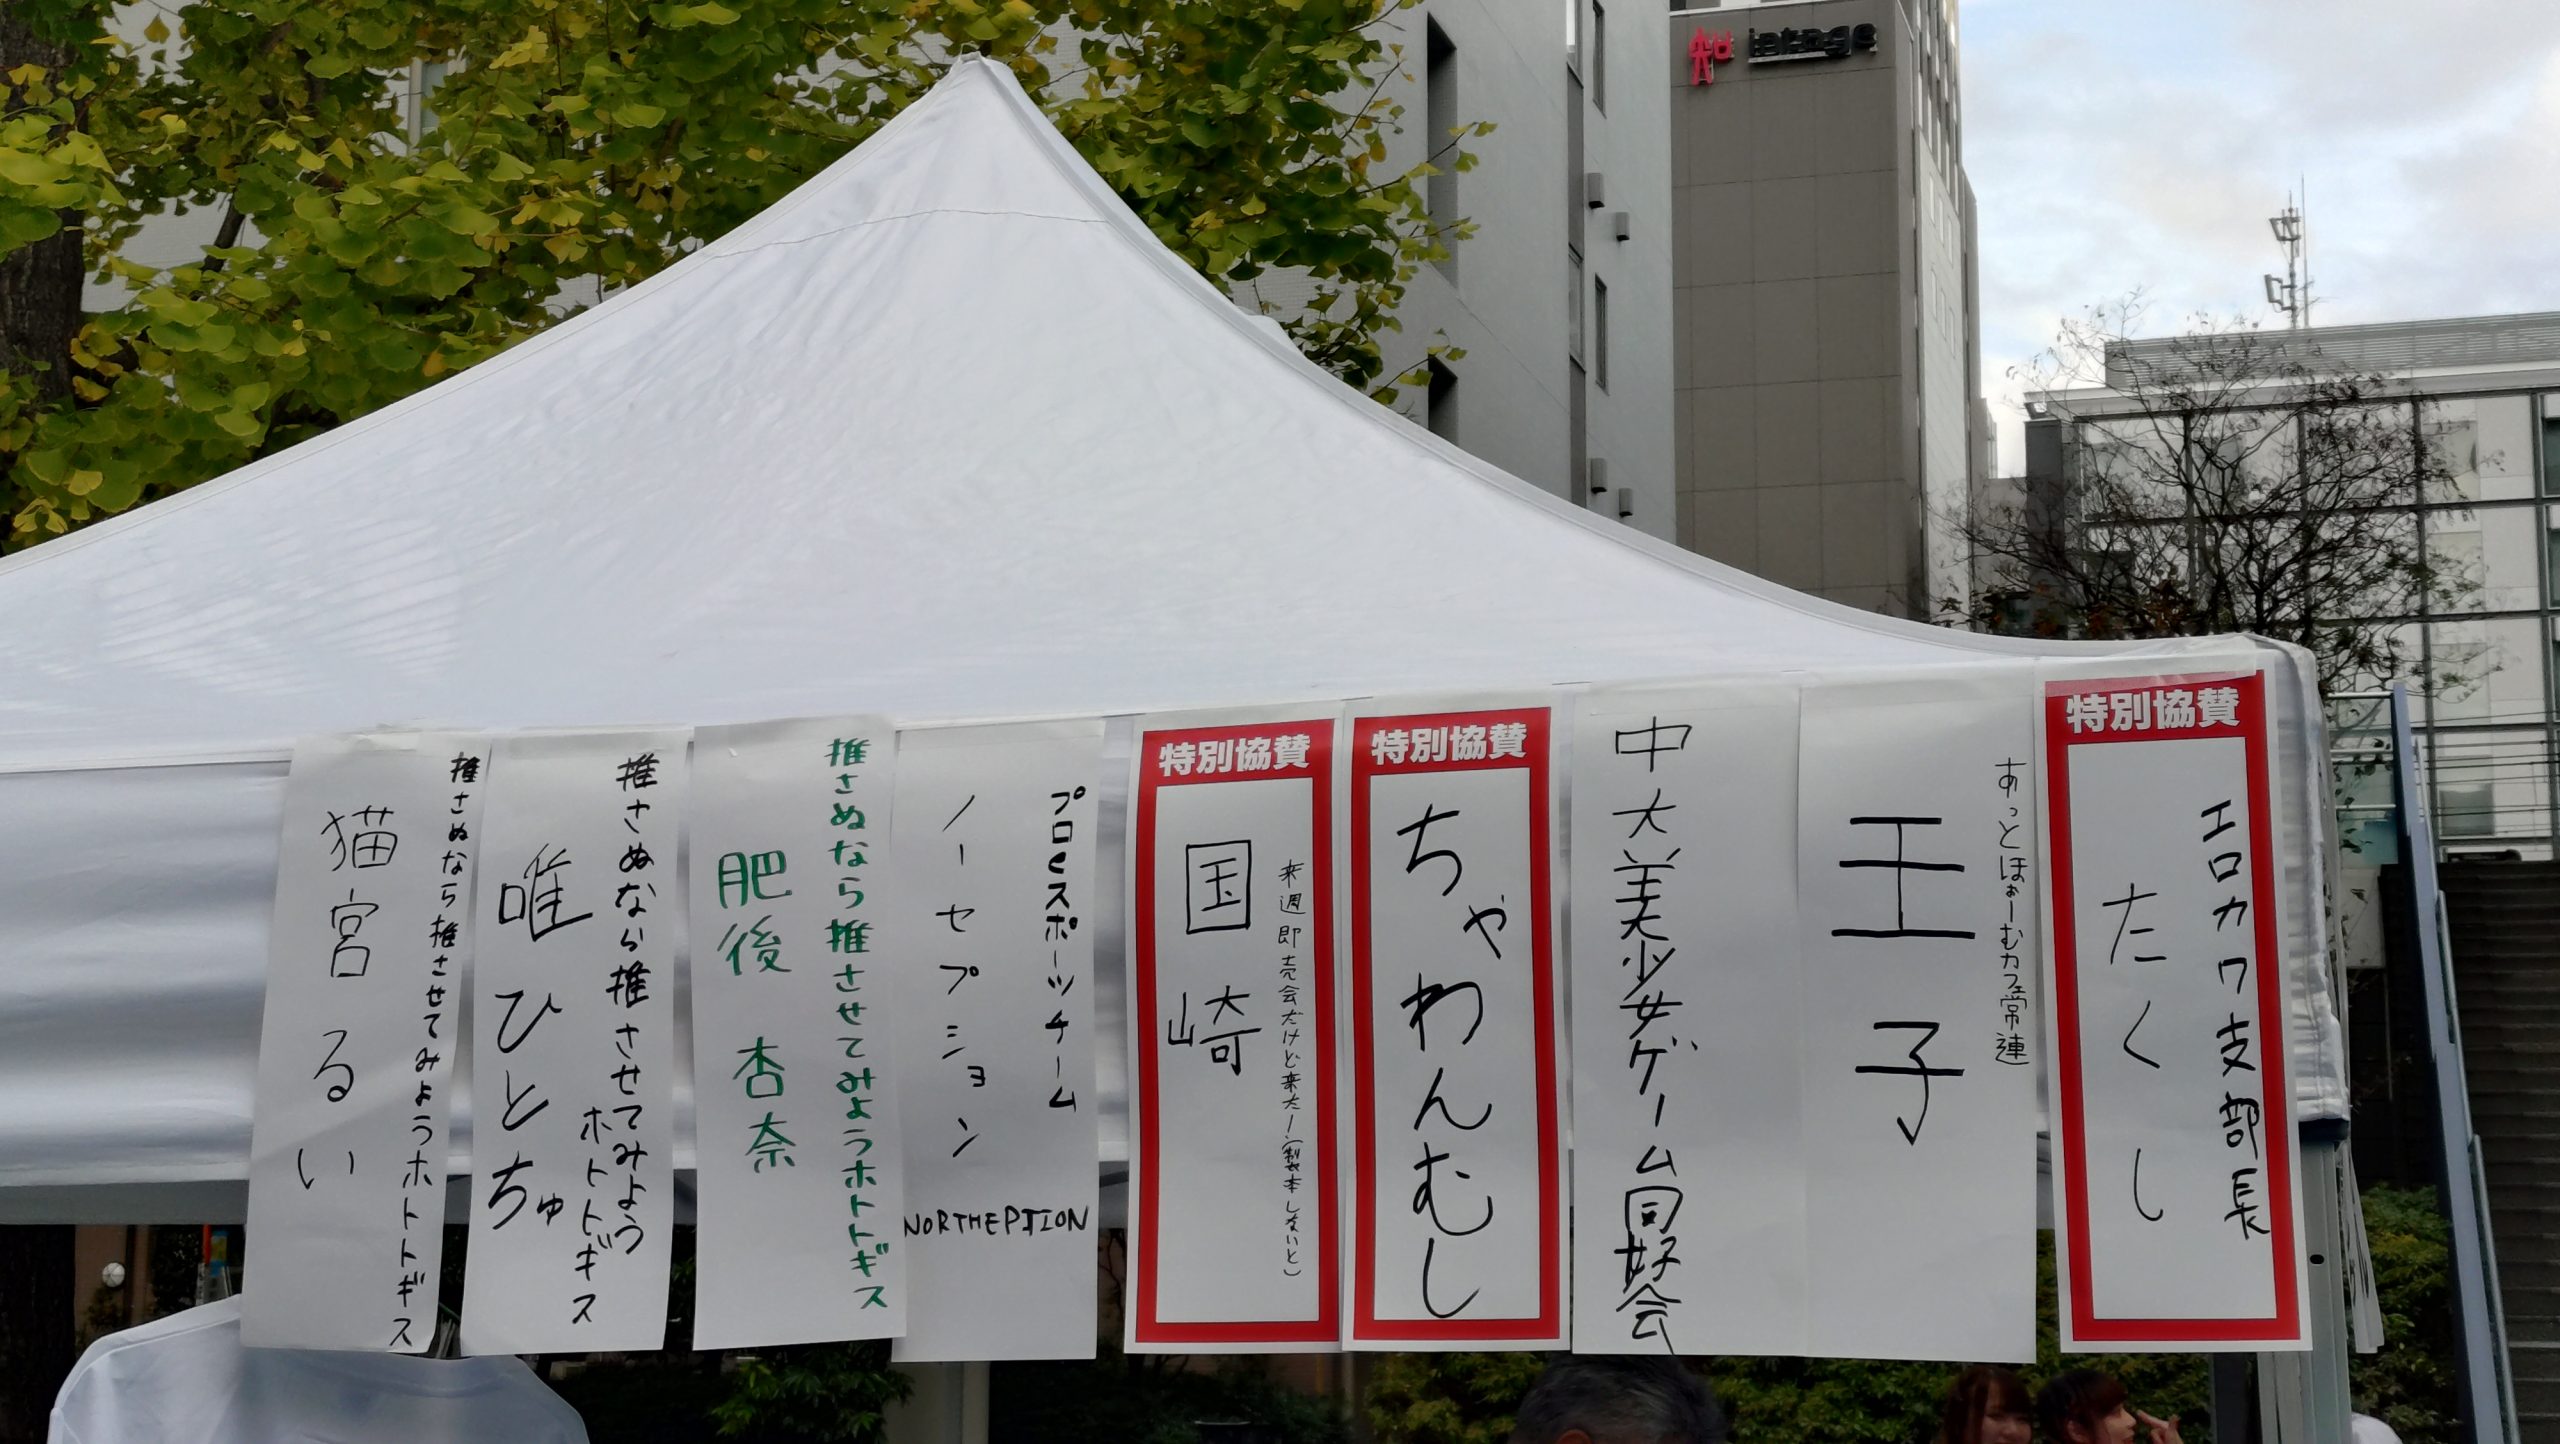 intage
特別協賛
エロカワ支部長
たくし
あっとほぉーむカフェ常連
王子
中大美少女ゲーム同好会
特別協賛
ちゃわんむし
特別協賛
来週即売会だけど来た!(製本しないと)
国崎
プロeスポーツチーム
ノーセプション
NORTHEPTION
推さぬなら推させてみようホトトギス
肥後 杏奈
推さぬなら推させてみよう
ホトトギス
唯ひとちゅ
推さぬなら推させてみようホトトギス
猫宮るい